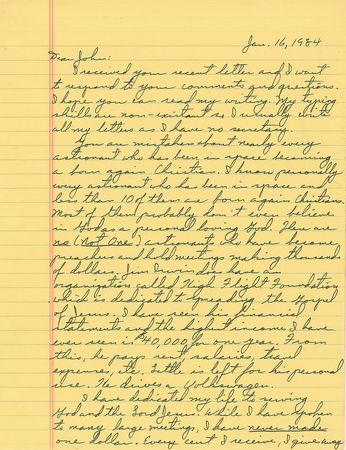 Jan. 16, 1984
Dear John:
I received your recent letter and I want
to respond to your comments and questions.
I hope you can read my writing. My typing
skills are non-existant so I usually write
all my letters as I have no secretary.
You are mistaken about nearly every
astronaut who has been in space becoming
a born again Christian. I know personally
every astronaut who has been in space and
less than 10 of them are born again Christians.
Most of them probably don't even believe
in God as a personal loving God. There are
no (not one) astronauts who have become
preachers and hold meetings making thousands
of dollars. Jim Irwin does have an
organization called High Flight Foundation
which is dedicated to spreading the Gospel
of Jesus. I have seen his financial
statements and the highest income I have
ever seen is $40,000 for one year. From
this, he pays rent, salaries, travel
expenses, etc. Little is left for his personal
use. He drives a Volkswagen.
I have dedicated my life to serving
God and the Lord Jesus. While I have spoken
to many large meetings, I have never made
one dollar. Every cent I receive, I give away